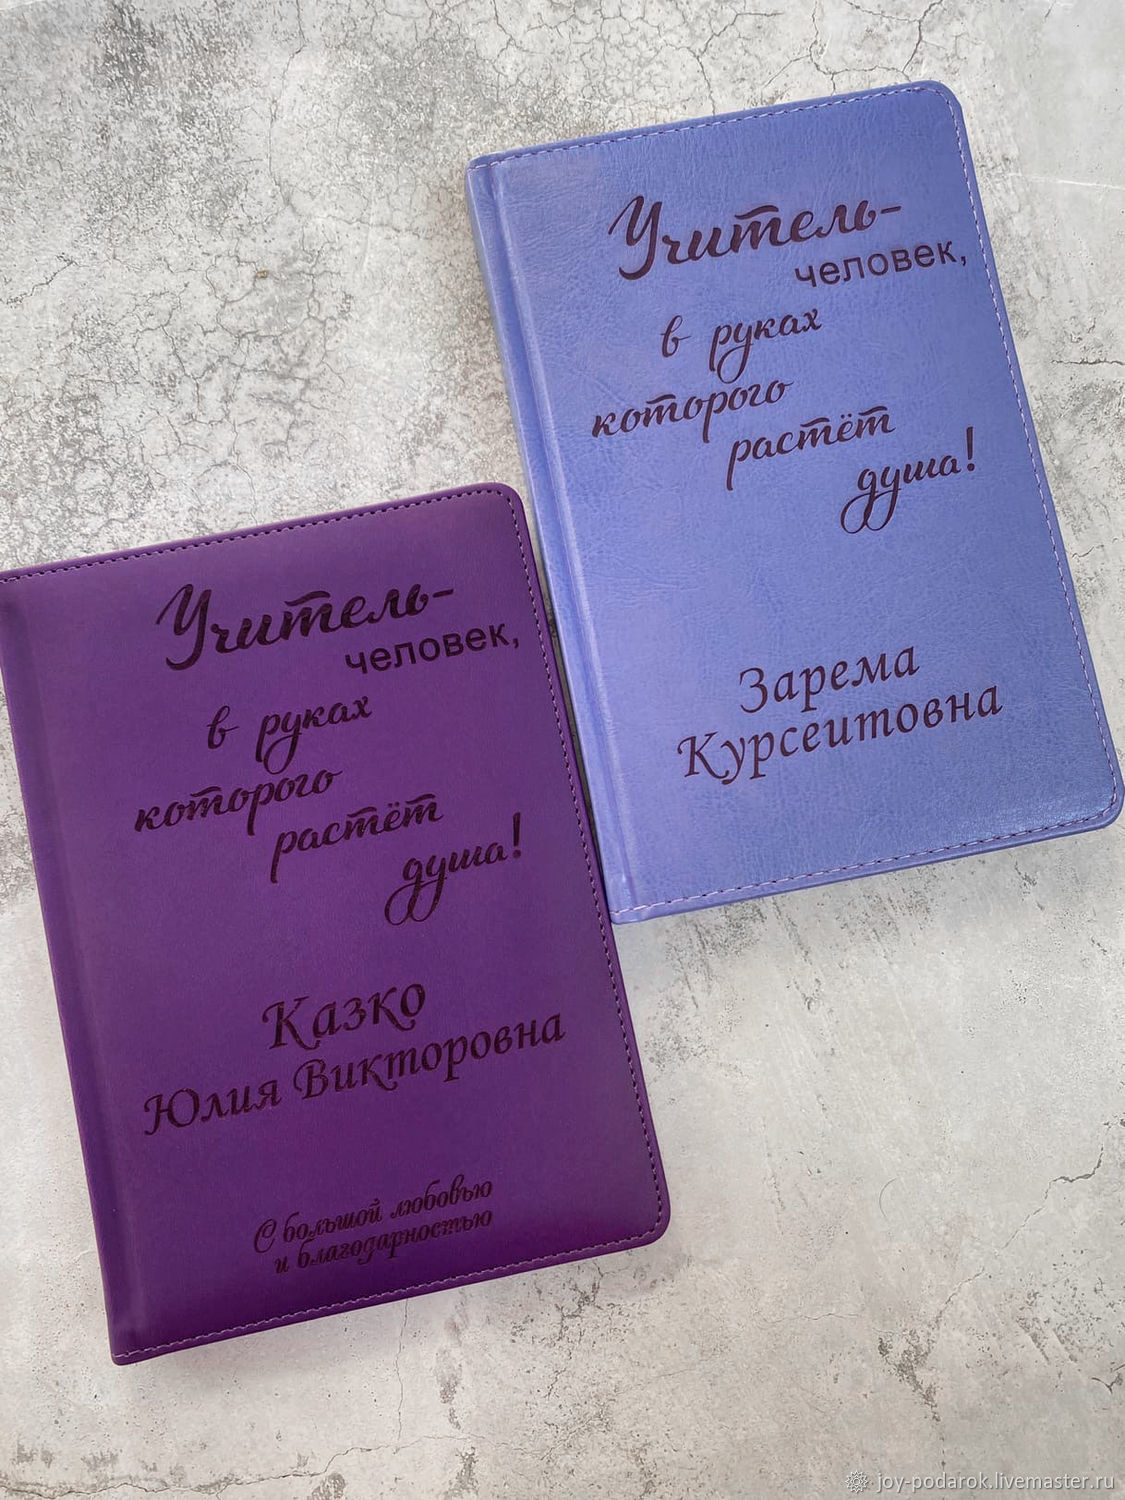 Учитель-
человек,
в руках
которого
растёт
душа!
Зарема
Курсеитовна
Учитель-
человек,
в руках
которого
растёт
душа!
Казко
Юлия Викторовна
С большой любовью
и благодарностью
joy-podarok.livemaster.ru